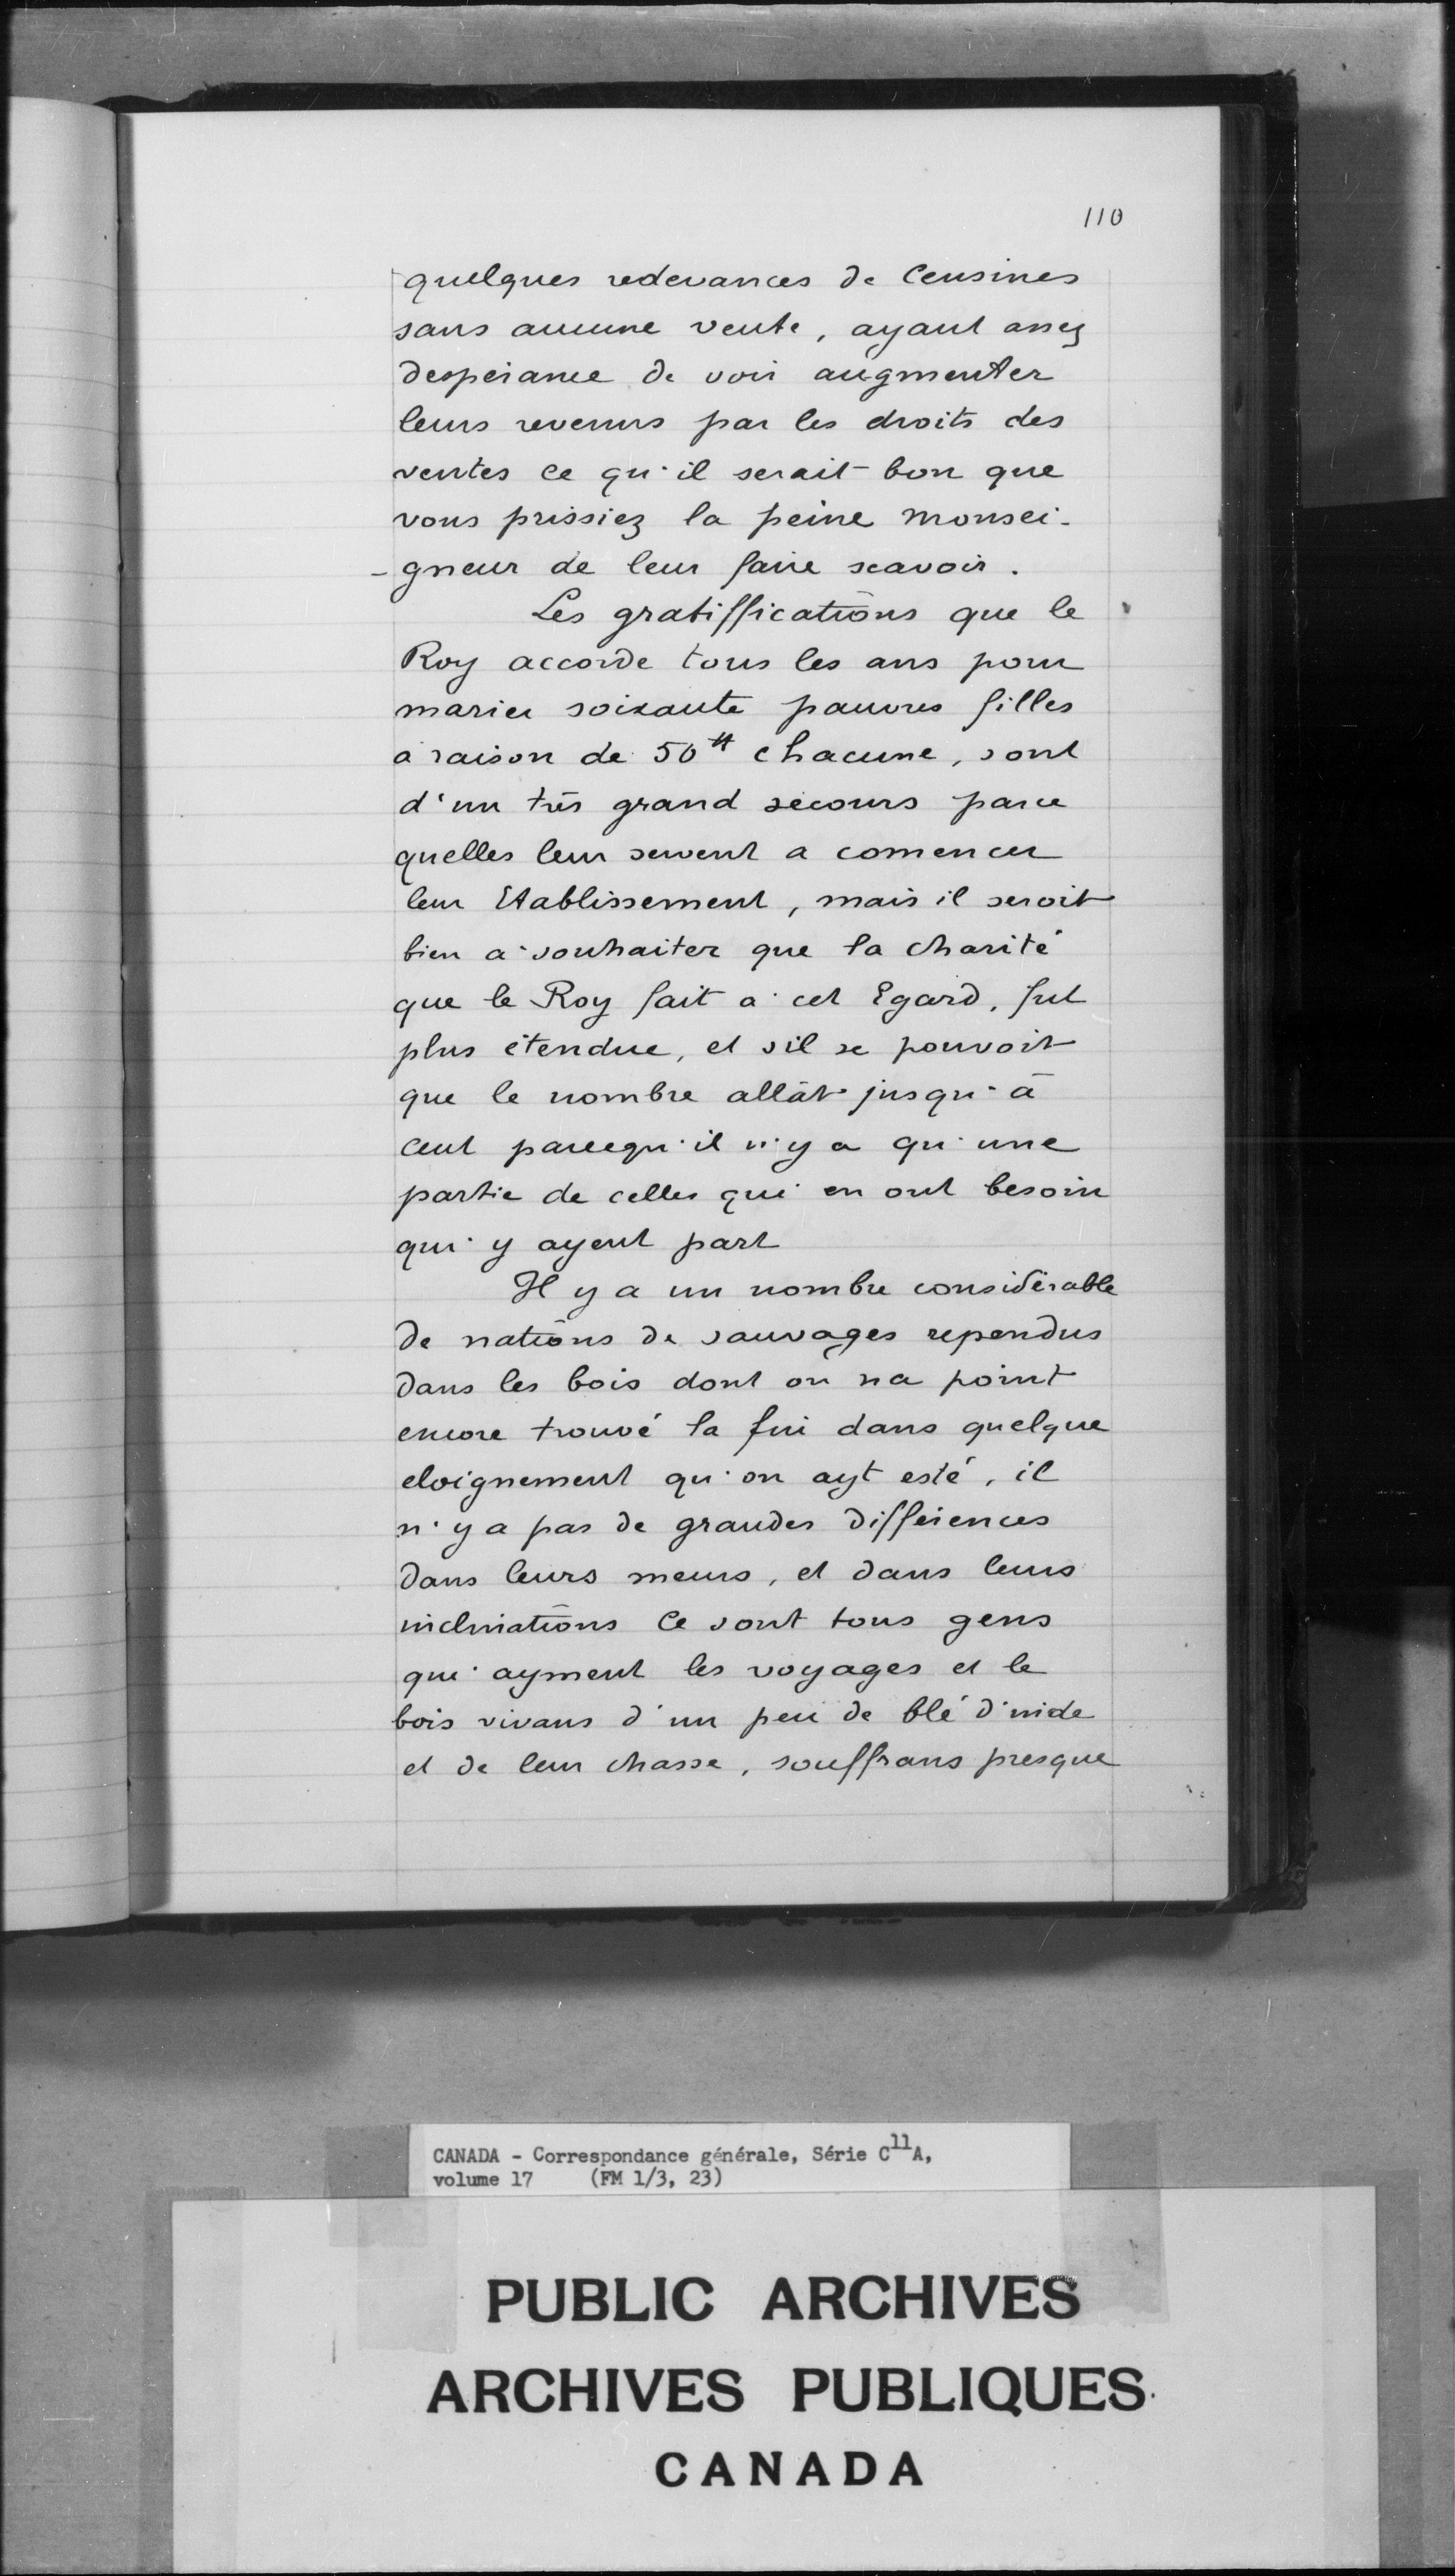 110
quelques redevances de Censines
sans aucune vente, ayant assez
despérance de voir augmenter
leurs revenus par les droits des
ventes ce qu'il serait bon que
vous prissiez la peine monsei-
-gneur de leur faire scavoir.
Les gratiffications que le
Roy accorde tous les ans pour
marier soixante pauvres filles
a raison de 50# chacune, sont
d'un très grand secours parce
quelles leur servent a comencer
leur Etablissement, mais il seroit
bien a souhaiter que la charité
que le Roy fait a cet Egard, fut
plus étendue, et sil se pouvoit
que le nombre allât jusqu'à
cent parcequ'il n'y a qu'une
partie de celles qui en ont besoin
qui y ayent part
Il y a un nombre considérable
de nations de sauvages rependus
dans les bois dont on na point
encore trouvé la fin dans quelque
eloignement qu'on ayt esté, il
n'y a pas de grandes différences
dans leurs meurs, et dans leurs
inclinations Ce sont tous gens
qui ayment les voyages et le
bois vivans d'un peu de blé d'inde
et de leur chasse, souffrans presque
CANADA - Correspondance générale, Série C11A,
volume 17 (FM 1/3, 23)
PUBLIC ARCHIVES
ARCHIVES PUBLIQUES
CANADA